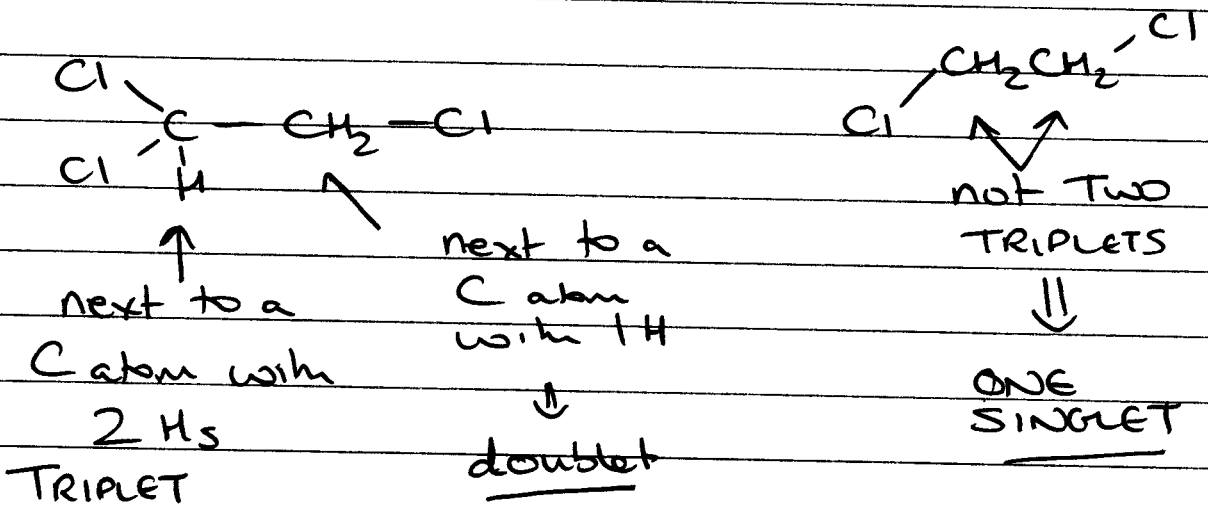 Cl
C — CH₂ — Cl
Cl
H
next to a
C atom with
2 Hs
TRIPLET
next to a
C atom
with 1H
⇓
doublet
Cl
CH₂CH₂
Cl
not TWO
TRIPLETS
⇓
ONE
SINGLET